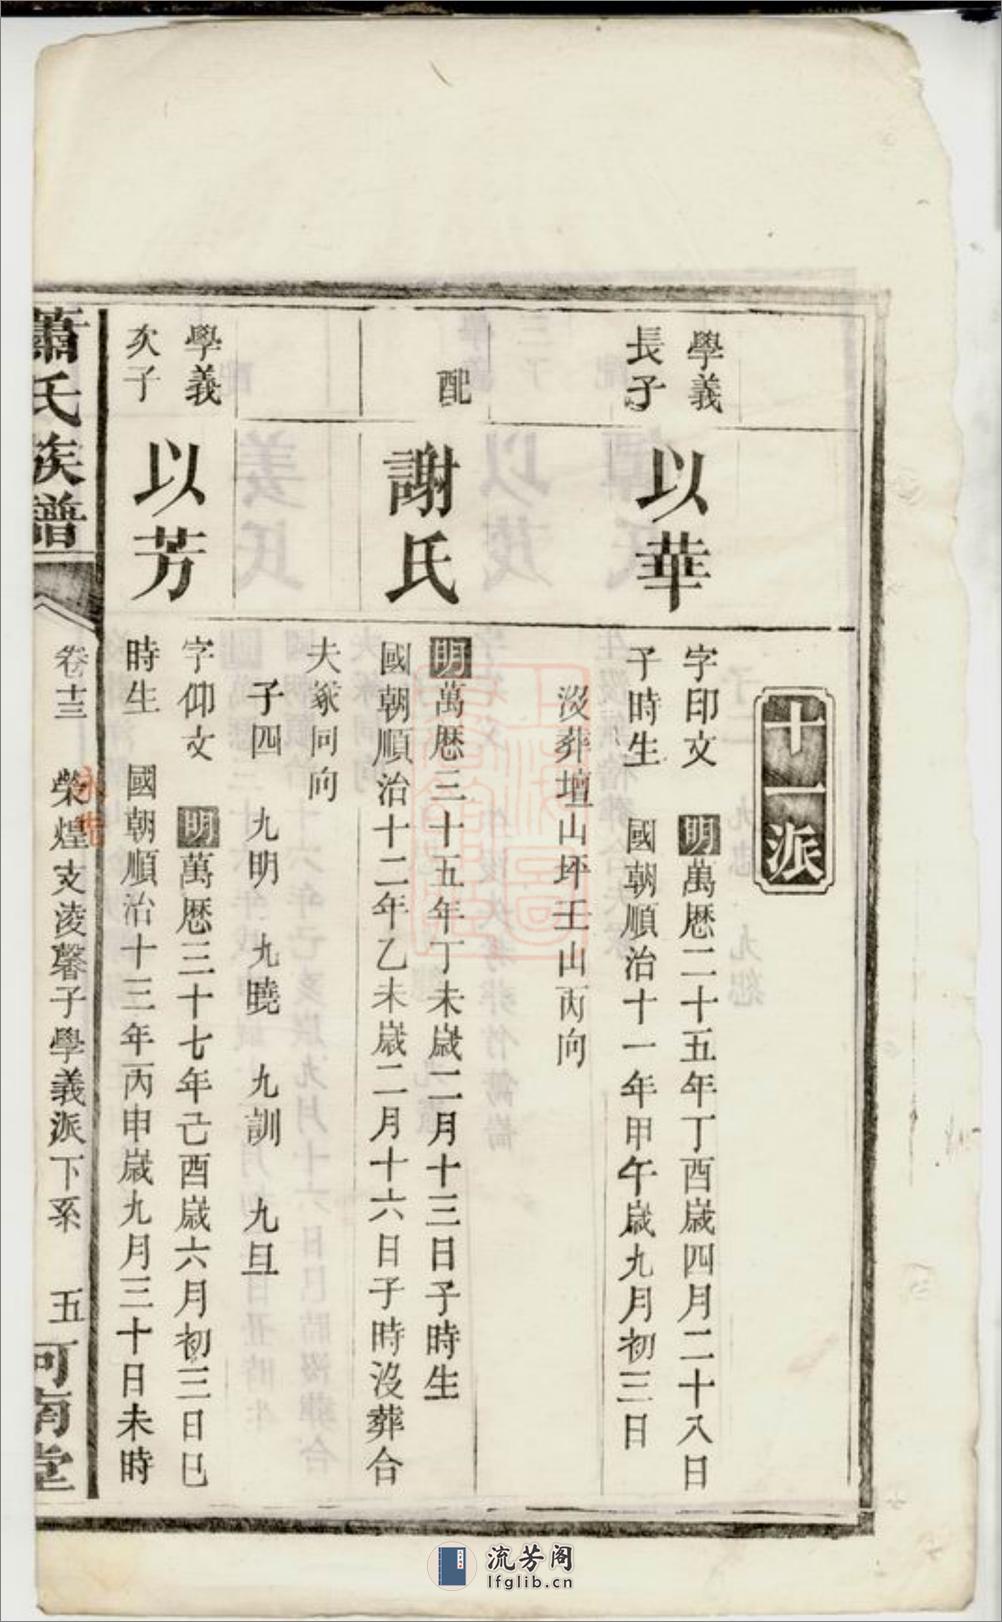 十一派
學義
長子
以華
字印文 明萬厯二十五年丁酉歲四月二十八日
子時生 國朝順治十一年甲午歲九月初三日
沒葬壇山坪壬山丙向
配
謝氏
明萬厯三十五年丁未歲二月十三日子時生
國朝順治十二年乙未歲二月十六日子時沒葬合
夫冢同向
子四 九明 九曉 九訓 九旦
學義
次子
以芳
字仰文 明萬厯三十七年己酉歲六月初三日巳
時生 國朝順治十三年丙申歲九月三十日未時
蕭氏族譜
卷十三 榮煌支淩馨子學義派下系 五
河南堂
流芳阁
lfglib.cn